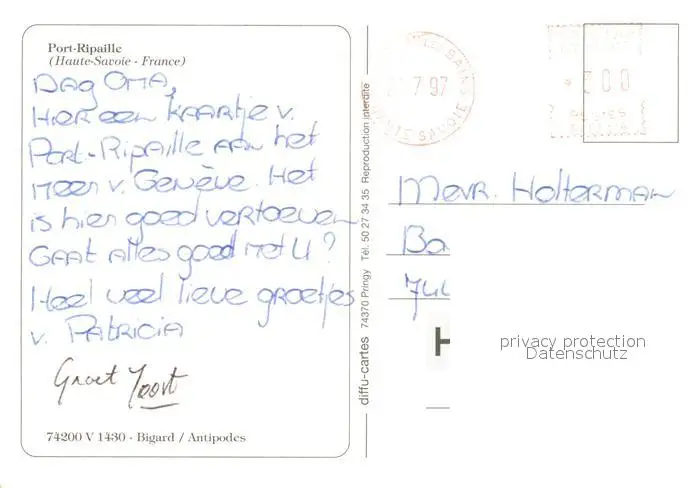 Port-Ripaille
(Haute-Savoie - France)
DAG OMA,
HIER EEN KAARTJE v.
PORT-RIPAILLE AAN het
MEER v. GENÈVE. HET
is hier goed vertoeven
GAAT ALLES goed MET U?
Heel veel lieve groetjes
v. PATRICIA
Groet Joost
74200 V 1430 - Bigard / Antipodes
diffu-cartes 74370 Pringy Tél. 50 27 34 35 Reproduction interdite
7 97
HAUTE SAVOIE
300
POSTES
MEVR. HOLTERMAN
Ba
7
H
privacy protection
Datenschutz